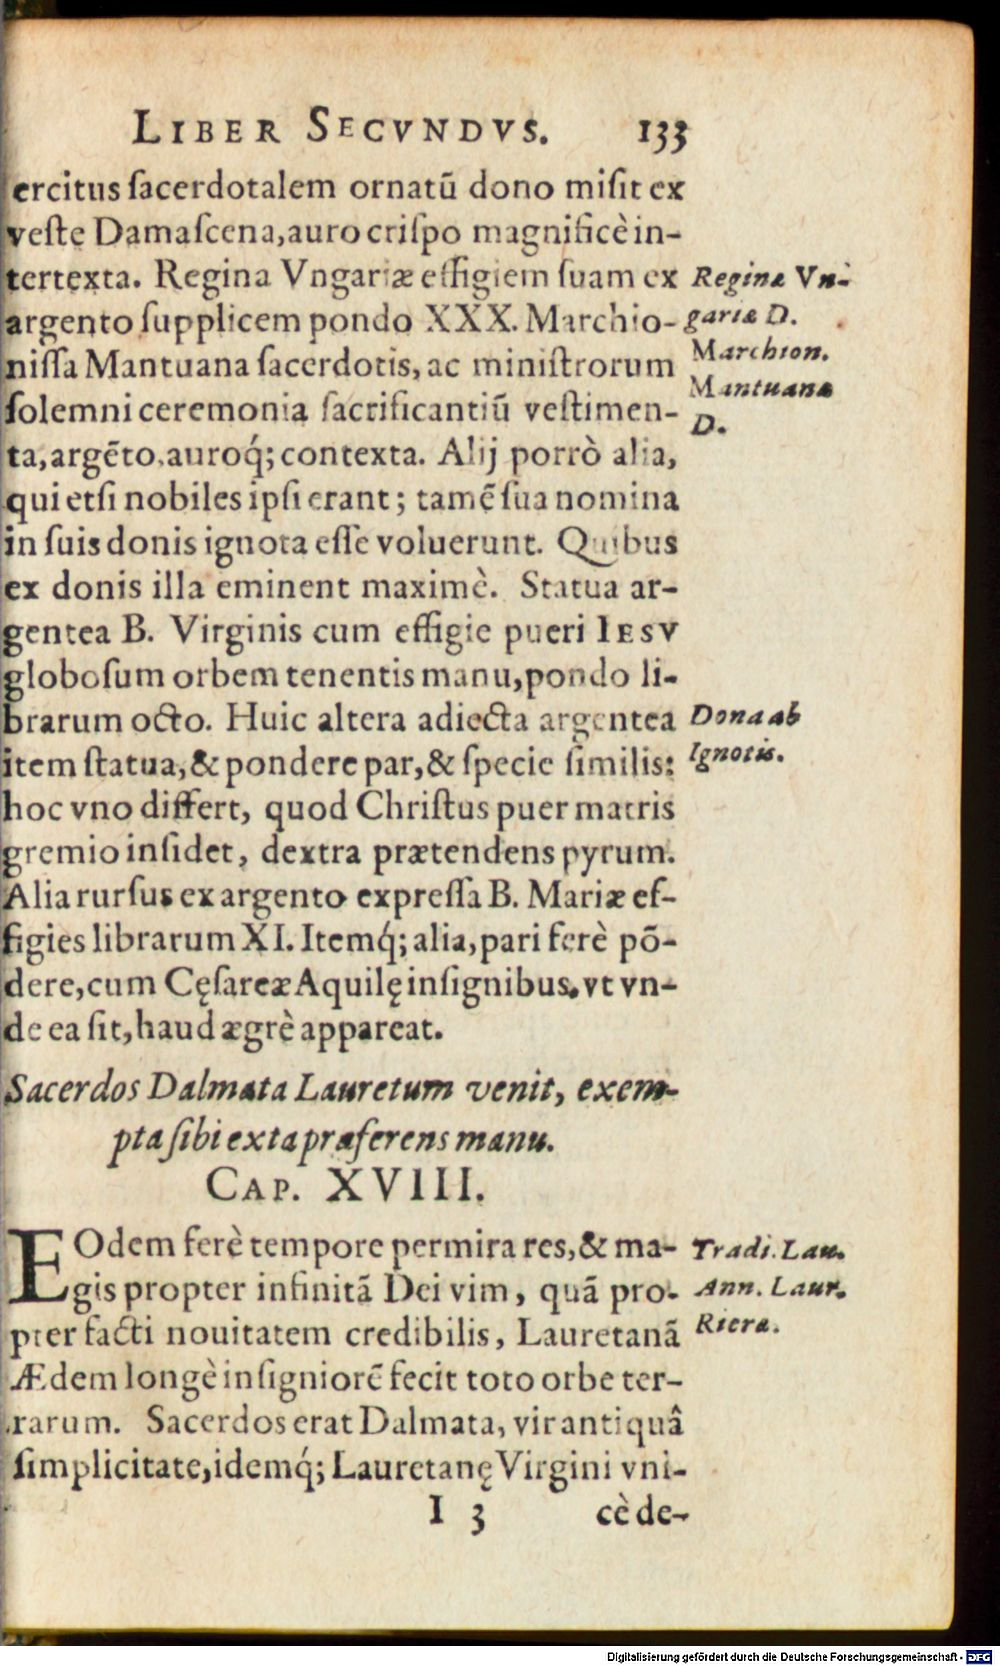 LIBER SECVNDVS. 133
ercitus ſacerdotalem ornatū dono miſit ex
veſte Damaſcena, auro criſpo magnificè in-
tertexta. Regina Vngariæ effigiem ſuam ex
argento ſupplicem pondo XXX. Marchio-
niſſa Mantuana ſacerdotis, ac miniſtrorum
ſolemni ceremonia ſacrificantiū veſtimen-
ta, argēto, auroq́; contexta. Alij porrò alia,
qui etſi nobiles ipſi erant; tamē ſua nomina
in ſuis donis ignota eſſe voluerunt. Quibus
ex donis illa eminent maximè. Statua ar-
gentea B. Virginis cum effigie pueri IESV
globoſum orbem tenentis manu, pondo li-
brarum octo. Huic altera adiecta argentea
item ſtatua, & pondere par, & ſpecie ſimilis:
hoc vno differt, quod Chriſtus puer matris
gremio inſidet, dextra prætendens pyrum.
Alia rurſus ex argento expreſſa B. Mariæ ef-
figies librarum XI. Itemq́; alia, pari ferè pō-
dere, cum Cęſareæ Aquilę inſignibus, vt vn-
de ea ſit, haud ægrè appareat.
Reginæ Vn-
gariæ D.
Marchion.
Mantuanæ
D.
Dona ab
Ignotis.
Sacerdos Dalmata Lauretum venit, exem-
pta ſibi exta præferens manu.
CAP. XVIII.
EOdem ferè tempore permira res, & ma-
gis propter infinitā Dei vim, quā pro-
pter facti nouitatem credibilis, Lauretanā
Ædem longè inſigniorē fecit toto orbe ter-
rarum. Sacerdos erat Dalmata, vir antiquâ
ſimplicitate, idemq́; Lauretanę Virgini vni-
Tradi. Lau.
Ann. Laur.
Riera.
I 3 cè de-
Digitalisierung gefördert durch die Deutsche Forschungsgemeinschaft - DFG